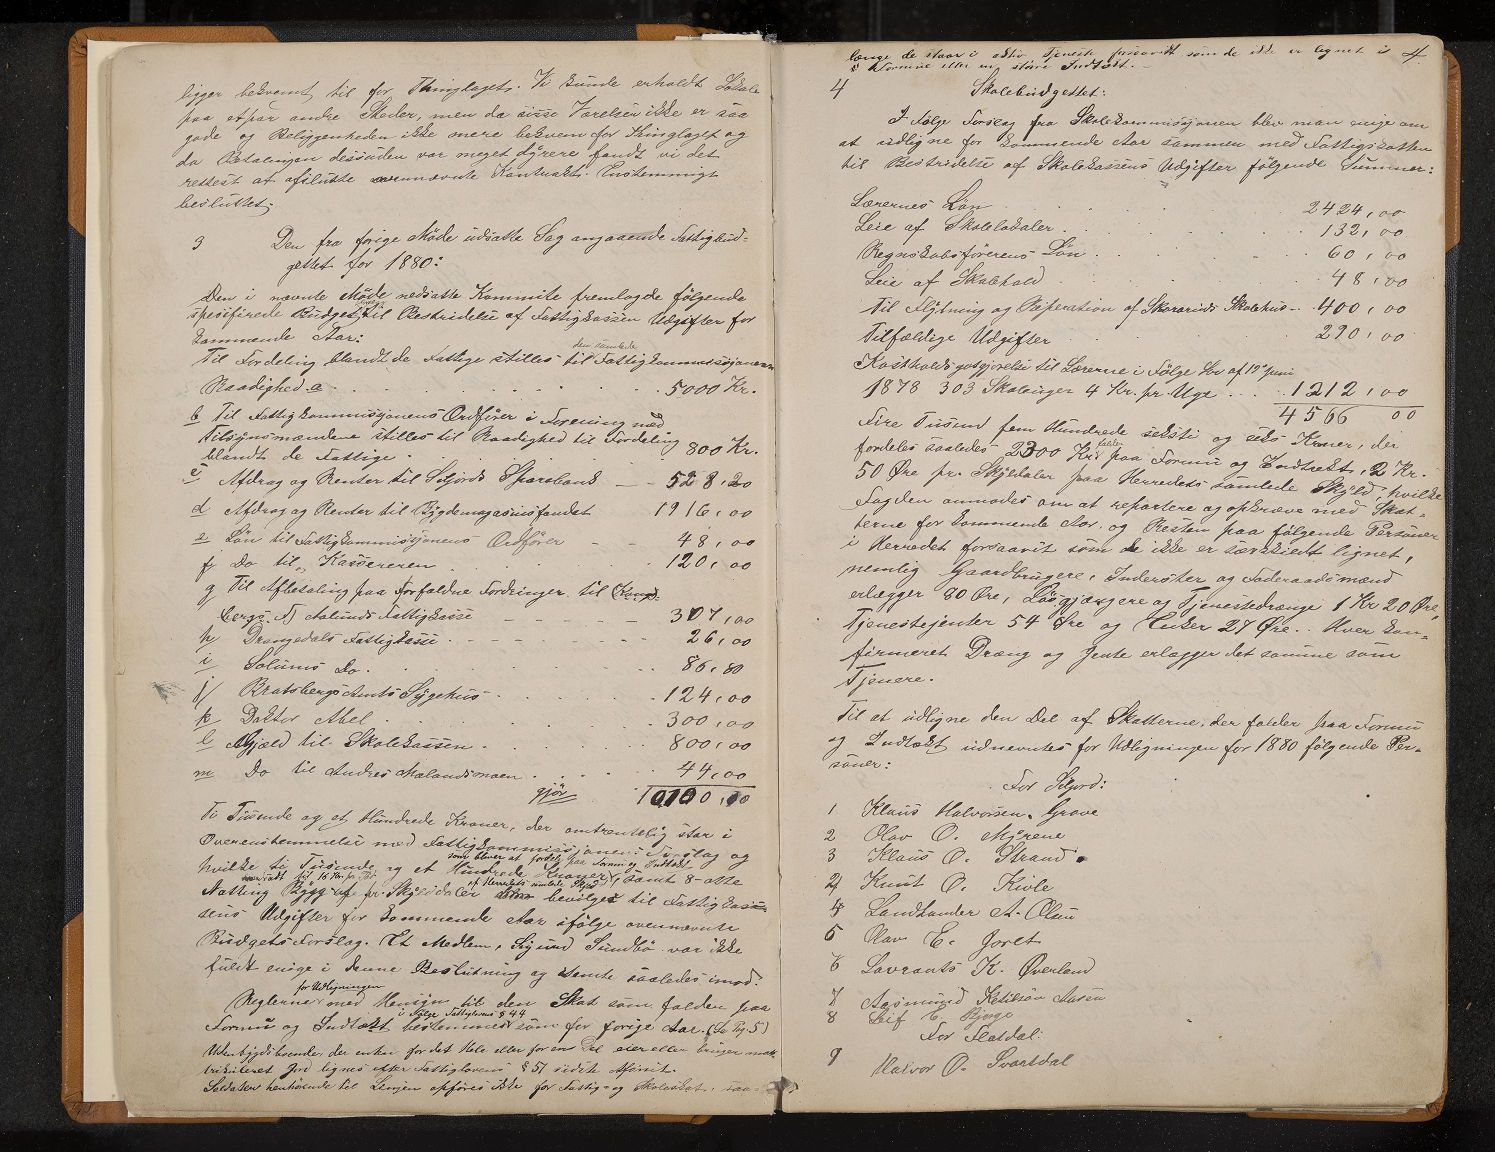 ligger bekvemt til for Thinglaget. Vi kunde erholdt Lokale
paa etpar andre Steder, men da disse Værelser ikke er saa
gode og Beliggenheden ikke mere bekvem for Thinglaget og
da Betalingen dessuden var meget dyrere fandt vi det
rettest at afslutte ovennævnte Kontrakt. Enstemmigt
besluttet.
3 Den fra forige Møde udsatte Sag angaaende Fattigbud=
gettet for 1880:
Den i nævnte Møde nedsatte Kommite fremlagde følgende
spesifirede Budget til Bestridelse af Fattigkassen Udgifter for
kommende Aar:
Til Fordeling blandt de Fattige stilles til den samlede Fattigkommissjonens
Raadighed a 5000 Kr.
b Til Fattigkommissjonens Ordfører i Forening med
Tilsynsmændene stilles til Raadighed til Fordeling
blandt de Fattige 800 Kr.
c Afdrag og Renter til Seljords Sparebank — — 528,20
d Afdrag og Renter til Bygdemagasinsfondet 1916,00
e Løn til Fattigkommissjonens Ordfører — — 48,00
f Do til Kassereren 120,00
g Til Afbetaling paa forfaldne Fordringer til Kongs-
bergs Fattigkasse 307,00
h Drangedals Fattigkasse 26,00
i Solums Do. 86,80
j Bratsbergs Amts Sygehus 124,00
k Doktor Abel 300,00
l Gjæld til Skolekassen 800,00
m Do til Andres Mælandsmoen 44,00
gjør 10100,00
Ti Tusende og et Hundrede Kroner, der omtrentelig star i
Overensstemmelse med Fattigkommissjonens Forslag og
som bliver at fordele paa Formue og Indtækt
hvilke ti Tusende og et Hundrede Kroner, samt 8 - otte
Fatting Bygg pr. Skyldaler bevilges til Fattigkas=
sens Udgifter for kommende Aar ifølge ovennævnte
Budgets Forslag. Et Medlem, Sigurd Sundbø var ikke
fuldt enige i denne Beslutning og stemte saaledes imod.
for Udligningen
Reglerne med Hensyn til den Skat som falder paa
i Følge Fattiglovens § 44
Formue og Indtækt bestemmes som for forige Aar. (Se Pag. 5)
Udenbygdsboende, der enten for det Hele eller for en Del eier eller bruger mat-
trikuleret Jord lignes efter Fattiglovens § 51 sidste Afsnit.
Soldater henhørende til Linjen opføres ikke for Fattig- og Skoleskat, saa
længe de staar i aktiv Tjeneste forsaavidt som de ikke er lignet i
Formue eller en større Indtækt. —
4
4 Skolebudgettet:
I Følge Forslag fra Skolekommissjonen blev man enige om
at udligne for kommende Aar sammen med Fattigskatten
til Bestridelse af Skolekassens Udgifter følgende Summer:
Lærernes Løn 2424,00
Leie af Skolelokaler 132,00
Regnskabsførerens Løn 60,00
Leie af Skolehold 48,00
Til Flytning og Reperation af Skolehus 400,00
Tilfældige Udgifter 290,00
Kostholdsgodtgjørelse til Lærerne i Følge Lov af 12te Juni
1878 303 Skoleuger 4 Kr. pr. Uge 1212,00
4566 00
Fire Tusind fem Hundrede seksti og seks Kroner, der
fordeles saaledes 2300 Kr. falder paa Formue og Indtækt, 2 Kr.
50 Øre pr. Skyldaler paa Herredets samlede Skyld, hvilke
Fogden anmodes om at repartere og opkræve med Skat-
terne for kommende Aar, og Resten paa følgende Personer
i Herredet forsaavit som de ikke er særskildt lignet,
nemlig Gaardbrugere, Inderster og Føderaadsmænd
erlægger 80 Øre, Løsgjængere og Tjenestedrenge 1 Kr 20 Øre,
Tjenestejenter 54 Øre og Enker 27 Øre. Hver kon-
firmeret Dræng og Jente erlægger det samme som
Tjenere.
Til at udligne den Del af Skatterne, der falder paa Formue
og Indtækt udnævntes for Udligningen for 1880 følgende Per-
soner:
For Seljord:
1 Klaus Halvorsen Grave
2 Olav O. Myrene
3 Klaus O. Strand
4 Knut O. Kivle
4 Landhandler A. Olsen
5 Olav E. Joret
6 Lavrants K. Øverland
7 Aasmund Ketilson Aasen
8 Leif E. Bjoge
For Flatdal:
9 Halvor O. Svartdal